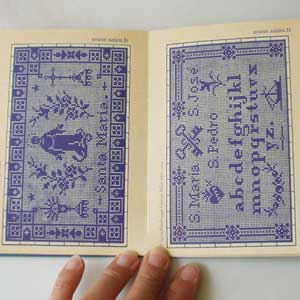 Santa Maria.
S. Maria. S. José.
S. Pedro
abcdefghijkl
mnopqrstuvx
yz.